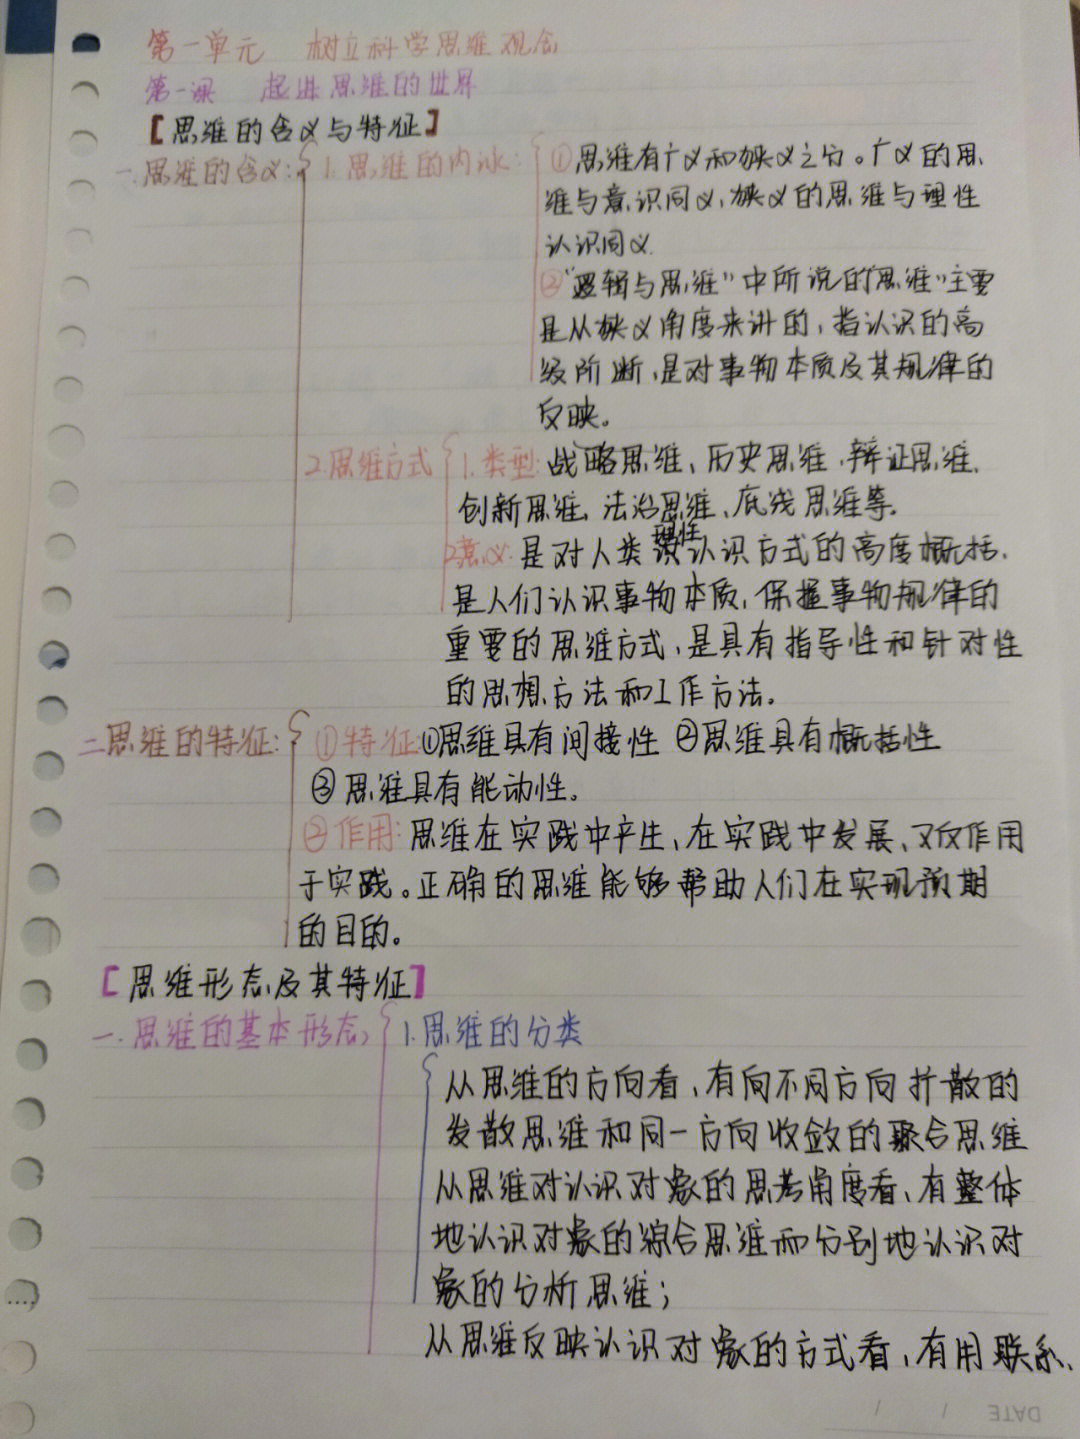 第一单元 树立科学思维观念
第一课 起进思维的世界
【思维的含义与特征】
一.思维的含义: 1.思维的内涵: ①思维有广义和狭义之分。广义的思
维与意识同义,狭义的思维与理性
认识同义.
②“逻辑与思维”中所说的“思维”主要
是从狭义角度来讲的,指认识的高
级阶断,是对事物本质及其规律的
反映。
2.思维方式 1.类型:战略思维、历史思维、辩证思维、
创新思维、法治思维、底线思维等.
2意义:是对人类理性认识方式的高度概括.
是人们认识事物本质,保握事物规律的
重要的思维方式,是具有指导性和针对性
的思想方法和工作方法。
二思维的特征: ①特征:①思维具有间接性 ②思维具有概括性
③思维具有能动性。
②作用:思维在实践中产生、在实践中发展、又反作用
于实践。正确的思维能够帮助人们在实现预期
的目的。
【思维形态及其特征】
一.思维的基本形态 1.思维的分类
从思维的方向看,有向不同方向扩散的
发散思维和同一方向收敛的聚合思维
从思维对认识对象的思考角度看,有整体
地认识对象的综合思维而分别地认识对
象的分析思维;
从思维反映认识对象的方式看,有用联系、
DATE / /